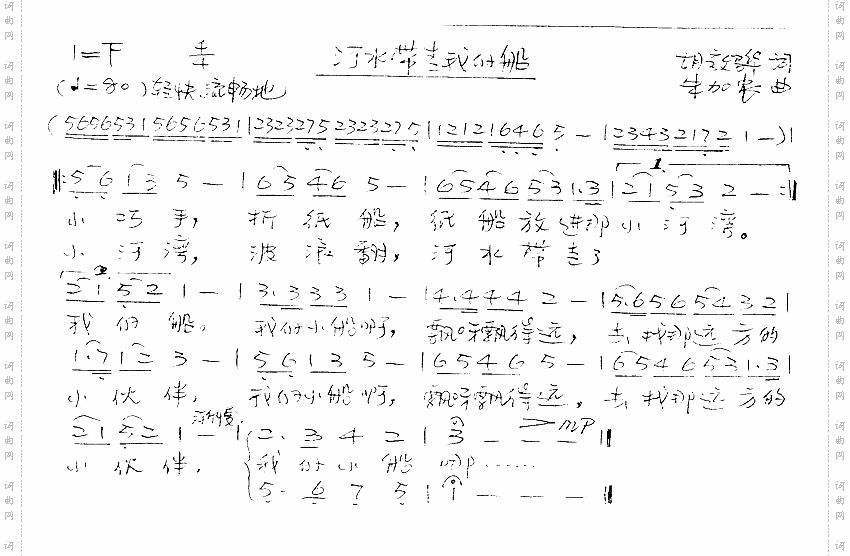 1=F 4/4 河水带走我的船 词
(♩=80)轻快 流畅地 牛加农 曲
(56565315656531|2323275232327 5|12121646 5 –|23432172 1 –)|
1.
‖:56 13 5 – |65 46 5 – |6546531.3|2153 2 – :‖
小巧手, 折纸船, 纸船放进那小河湾。
小河湾, 波浪翻, 河水带走了
2.
2152 1 – |3.333 1 – |4.444 2 – |5.6565432|
我的船。 我的小船啊, 飘呀飘得远, 去找那远方的
1.712 3 – |5613 5 – |6546 5 – |6546531.3|
小伙伴, 我的小船啊, 飘呀飘得远, 去找那远方的
渐慢
2152 1 – |2. 3 4 2|3 – – – ‖ >mp
小伙伴, 我的小船啊……
5. 6 7 5|1 – – – ‖
词曲网